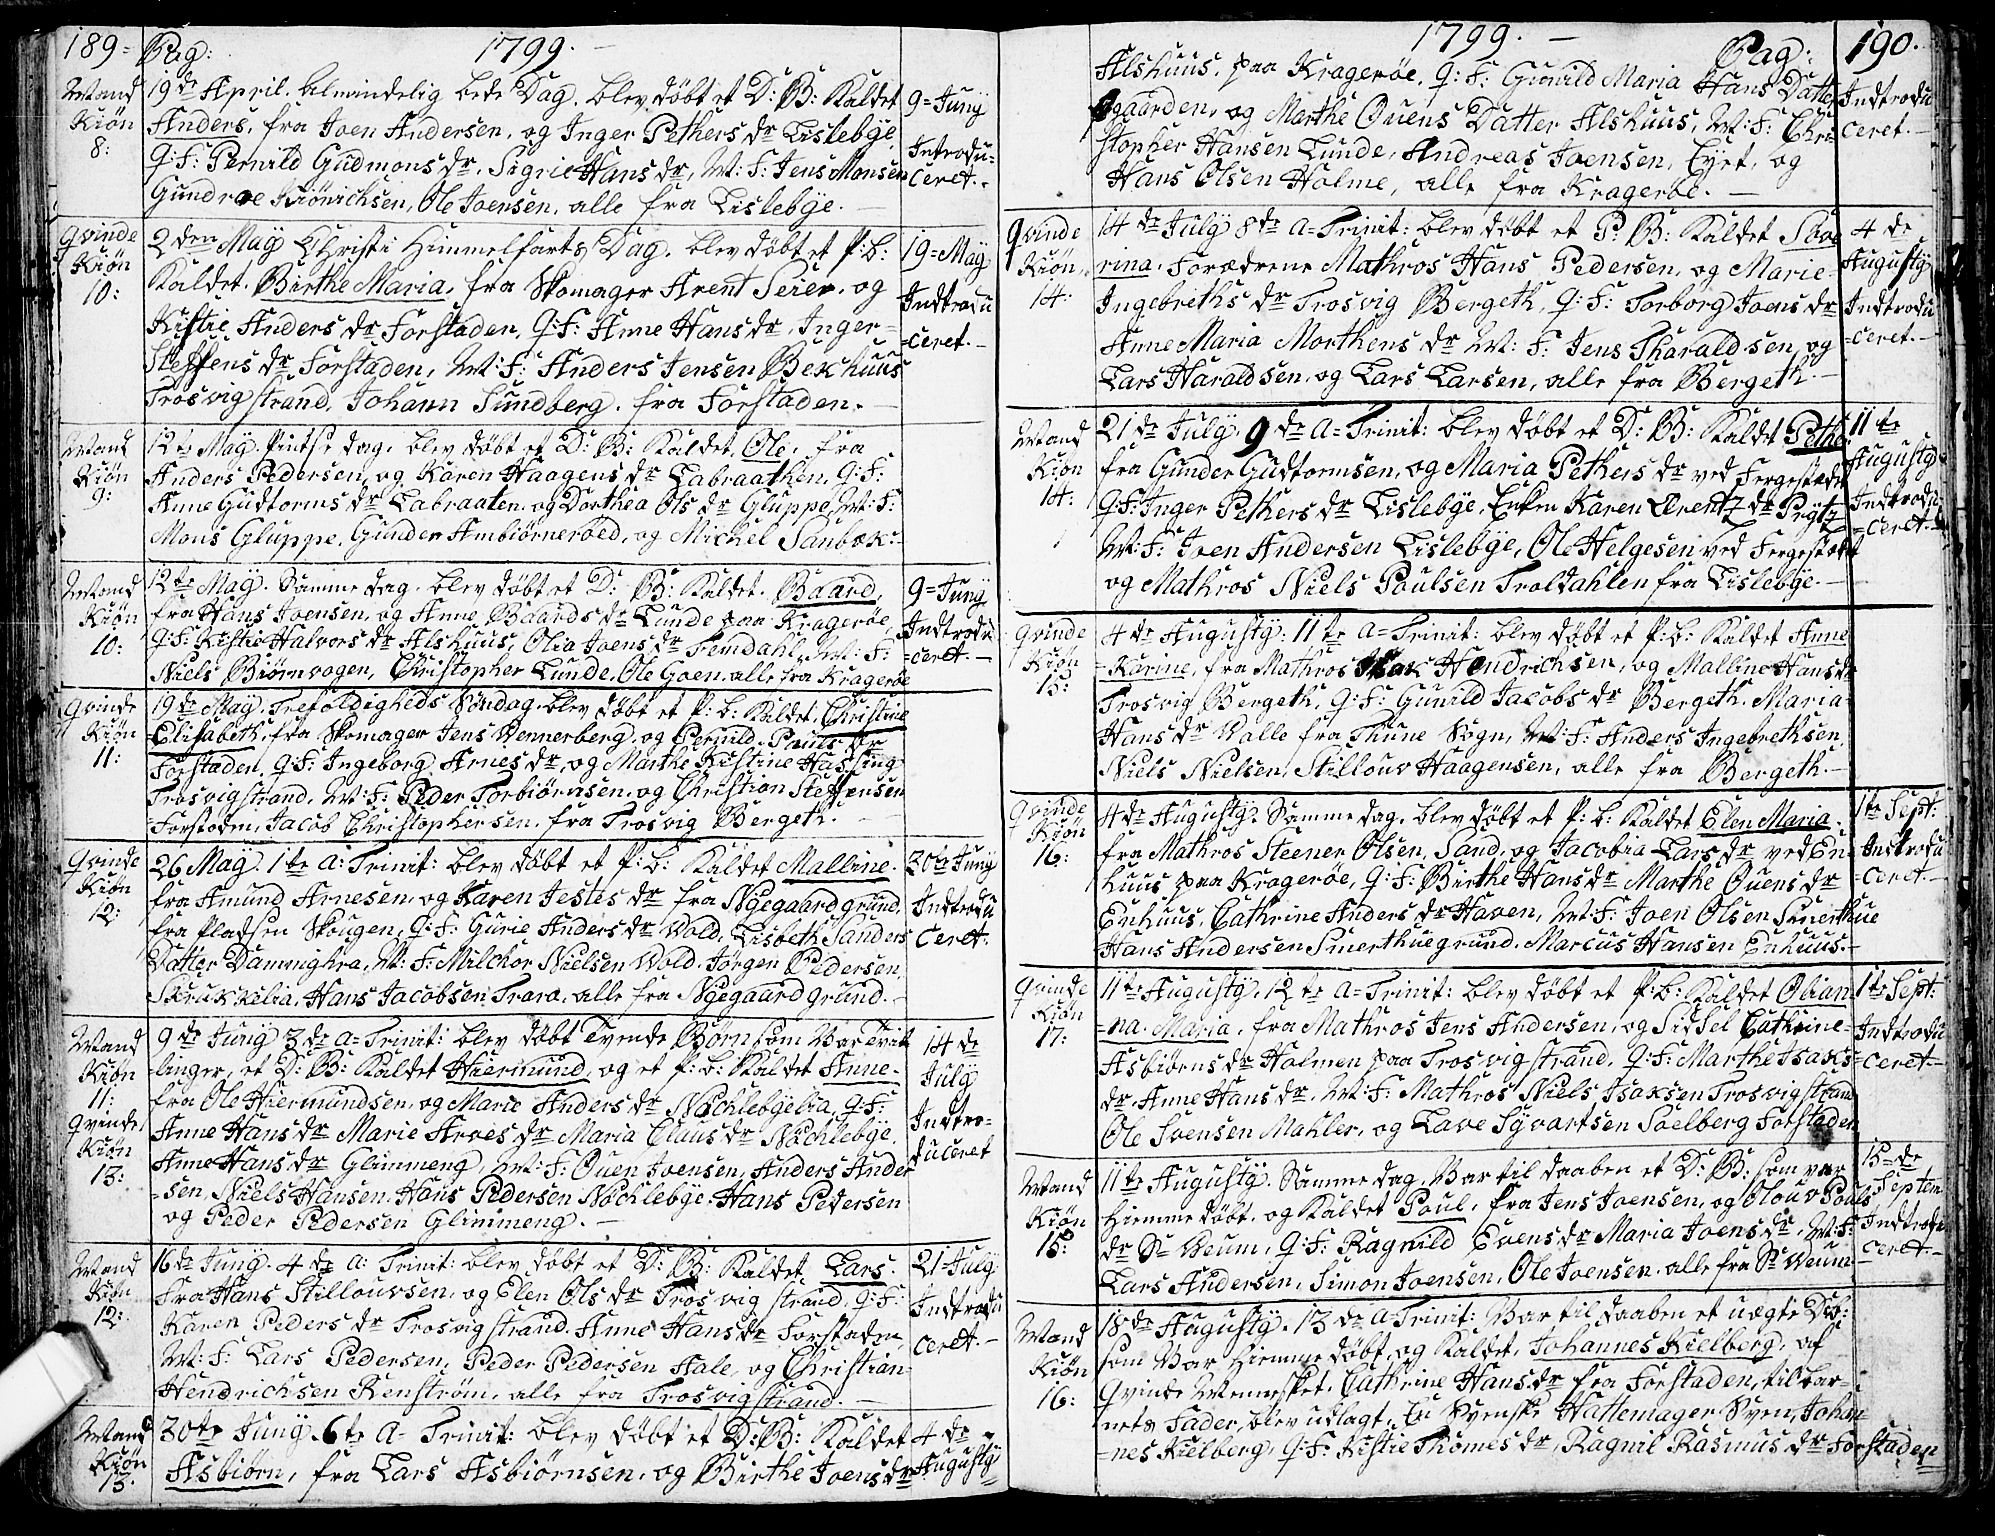 189= Pag: 1799.
Mand Kiøn 8:
19de April. Almindelig bede Dag. blev døbt et D: B: Kaldet
Anders, fra Joen Andersen, og Inger Pethers dr Lislebÿe,
Q: F: Pernild Gudmons dr, Sigrie Hans dr, M: F: Jens Monsen
Gundroe Kiønichsen, Ole Joensen, alle fra Lislebÿe.
9= Junÿ Introdu-ceret.
Qvinde Kiøn 10:
2den Maÿ Christi Himmelfarts Dag. blev døbt et P: b:
Kaldet. Birthe Maria, fra Skomager Arent Peier, og
Kistie Anders dr Forstaden, Q: F: Anne Hans dr, Inger-
Steffens dr Forstaden, M: F: Anders Jensen Bekhuus
Trosvigstrand, Johann Sundberg. fra Forstaden.
19= Maÿ Indtrodu =ceret.
Mand Kiøn 9:
12te Maÿ. Pintse dag. blev døbt et D: B: Kaldet, Ole, fra
Anders Pedersen, og Karen Haagens dr Labraathen, Q: F:
Anne Gudtorms dr Labraaten, og Dorthea Ols dr Gluppe, M: F:
Mons Gluppe, Gunder Ambiørnerøed, og Michel Sanbæk-
Mand Kiøn 10:
12te Maÿ. Samme dag. blev døbt et D: B: Kaldet. Baard,
fra Hans Joensen, og Anne Baards dr Lunde paa Kragerøe,
Q: F: Kistie Halvors dr Alshuus, Olia Joens dr Femdahl, M: F:
Niels Biørnvogen, Christopher Lunde, Ole Goen, alle fra Kragerøe
9= Junÿ Indtrodu =ceret.
Qvinde Kiøn 11:
19de Maÿ. Trefoldigheds Søndag. blev døbt et P: b: Kaldet, Christine
Elisabeth, fra Skomager Jens Wennerberg, og Pernild Pauls dr
Forstaden, Q: F: Ingeborg Arnes dr, og Marthe Kistine Hassing
Trosvigstrand, M: F: Peder Torbiørnsen, og Christion Steffensen
Forstaden, Jacob Christophersen. fra Trosvig Bergeth.
Qvinde Kiøn 12:
26 Maÿ. 1te A: Trinit: blev døbt et P: b: Kaldet Malline.
fra Amund Arnesen, og Karen Jestes dr fra Nÿegaard grund,
fra Pladsen Skougen, Q: F: Gurie Anders dr Wold, Lisbeth Sanders
Datter Dammÿhra, M: F: Milchor Nielsen Wold. Jørgen Pedersen,
Skrukkelia, Hans Jacobsen Trara, alle fra Nÿegaard grund.
30te Junÿ Indtrodu ceret:
Mand Kiøn 11: Qvinde Kiøn 13:
9de Junÿ 3de A= Trinit: blev døbt Tvende Børn som Var Tvil
-linger, et D: B: Kaldet Hiermund, og et P: b: Kaldet Anne-
fra Ole Hiermundsen, og Marie Anders dr Nøchlebÿelia, Q: F:
Anne Hans dr Marie Arves dr Maria Claus dr Nøchlebÿe,
Anne Hans dr Glimmeng, M: F: Ouen Joensen, Anders Ander
=sen, Niels Hansen, Hans Pedersen Nøchlebÿe. Hans Pedersen
og Peder Pedersen Glimmeng.
14de Julÿ Indtro-duceret
Mand Kiøn 12:
16de Junÿ. 4de A: Trinit: blev døbt et D: B: Kaldet Lars.
Fra Hans Stillouvsen, og Elen Ols dr Trosvig strand, Q: F:
Karen Peders dr Trosvig strand. Anne Hans dr Forstaden,
M: F: Lars Pedersen, Peder Pedersen Hale, og Christian
Hendrichsen Renstrøm, alle fra Trosvig strand.
21 Julÿ Indtrodu ceret.
Mand Kiøn 13.
30te Junÿ. 6te A= Trinit: blev døbt et D: B: Kaldet
Asbiørn, fra Lars Asbiørnsen, og Birthe Joens dr
4de Augustÿ
1799. Pag: 190.
Alshuus, paa Kragerøe, Q: F: Gunild Maria Hans Datter
gaarden, og Marthe Ouens Datter Alshuus, M: F: Chri
stopher Hansen Lunde, Andreas Joensen, Eÿet, og
Hans Olsen Holme, alle fra Kragerøe.
Indtrodu ceret.
Qvinde Kiøn 14:
14de Julÿ 8de A= Trinit: blev døbt et P: B: Kaldet Seve
rina. Forældrene Mathros Hans Pedersen, og Marie-
Ingebreths dr Trosvig Bergeth, Q: F: Torborg Joens dr
Anne Maria Morthens dr M: F: Jens Tharaldsen, og
Lars Haraldsen, og Lars Larsen, alle fra Bergeth.
4de Augustÿ Indtrodu =ceret.
Mand Kiøn 14:
21de Julÿ, 9de A= Trinit: blev døbt et D: B: Kaldet Pether
fra Gunder Gudtormsen, og Maria Pethers dr ved Fergestedet
Q: F: Inger Pethers dr Lislebÿe, Enken Karen Ærentz dr Prÿtz
M: F: Joen Andersen Lislebÿe, Ole Helgesen ved Fergestedet
og Mathros Niels Poulsen Troldahlen fra Lislebÿe.
11te Augustÿ Indtrodu =ceret.
Qvinde Kiøn 15:
4de Augustÿ: 11te A= Trinit: blev døbt et P: b: Kaldet Anne
=Karine, fra Mathros Isak Hendrichsen, og Malline Hans dr
Trosvig Bergeth, Q: F: Gunild Jacobs dr Bergeth. Maria-
Hans dr Walle fra Thune Sogn, M: F: Anders Ingebrethsen,
Niels Nielsen, Stillouv Haagensen, alle fra Bergeth.
Qvinde Kiøn 16:
4de Augustÿ. Samme dag. blev døbt et P: b: Kaldet Elen Maria.
fra Mathros Steener Olsen, Sand, og Jacobia Lars dr ved En
huus paa Kragerøe, Q: F: Birthe Hans dr Marthe Ouens dr
Enhuus, Cathrine Anders dr Haven, M: F: Joen Olsen Smerthue
Hans Andersen Smerthuegrund. Marcus Hansen Enhuus.
1te Sept: Indtrodu =ceret.
Qvinde Kiøn 17:
11te Augustÿ. 12te A= Trinit: blev døbt et P: b: Kaldet Olian
=na. Maria, fra Mathros Jens Andersen, og Sissel Cathrine-
Asbiørns dr Holmen paa Trosvig strand, Q: F: Marthe Isaks
dr, Anne Hans dr. M: F: Mathros Niels Isaksen Trosvig strand
Ole Svensen Mahler, og Lave Sÿvartsen Soelberg Forstaden,
1te Sept: Indtrodu =ceret.
Mand Kiøn 15:
11te Augustÿ. Samme dag. Var til daaben et D: B: som var
Hiemme døbt, og Kaldet Poul, fra Jens Joensen, og Olouv Pouls
dr Sr Weum, Q: F: Ragnild Evens dr Maria Joens dr, M: F:
Lars Andersen, Simon Joensen, Ole Joensen, alle fra Sr Weum
15=de Septem Indtrodu ceret.
Mand Kiøn 16:
18de Augustÿ. 13de A= Trinit: Var til daaben et uægte D: b:
som Var Hiemme døbt, og Kaldet, Johannes Kielberg, af
Qvinde Mennesket. Cathrine Hans dr fra Forstaden, til bar-
nets Fader, blev udlagt, En Svenske Hattemager Sven, Johan
-nes Kielberg, Q: F: Kistie Thomes dr, Ragnil Rasmus dr Forstaden